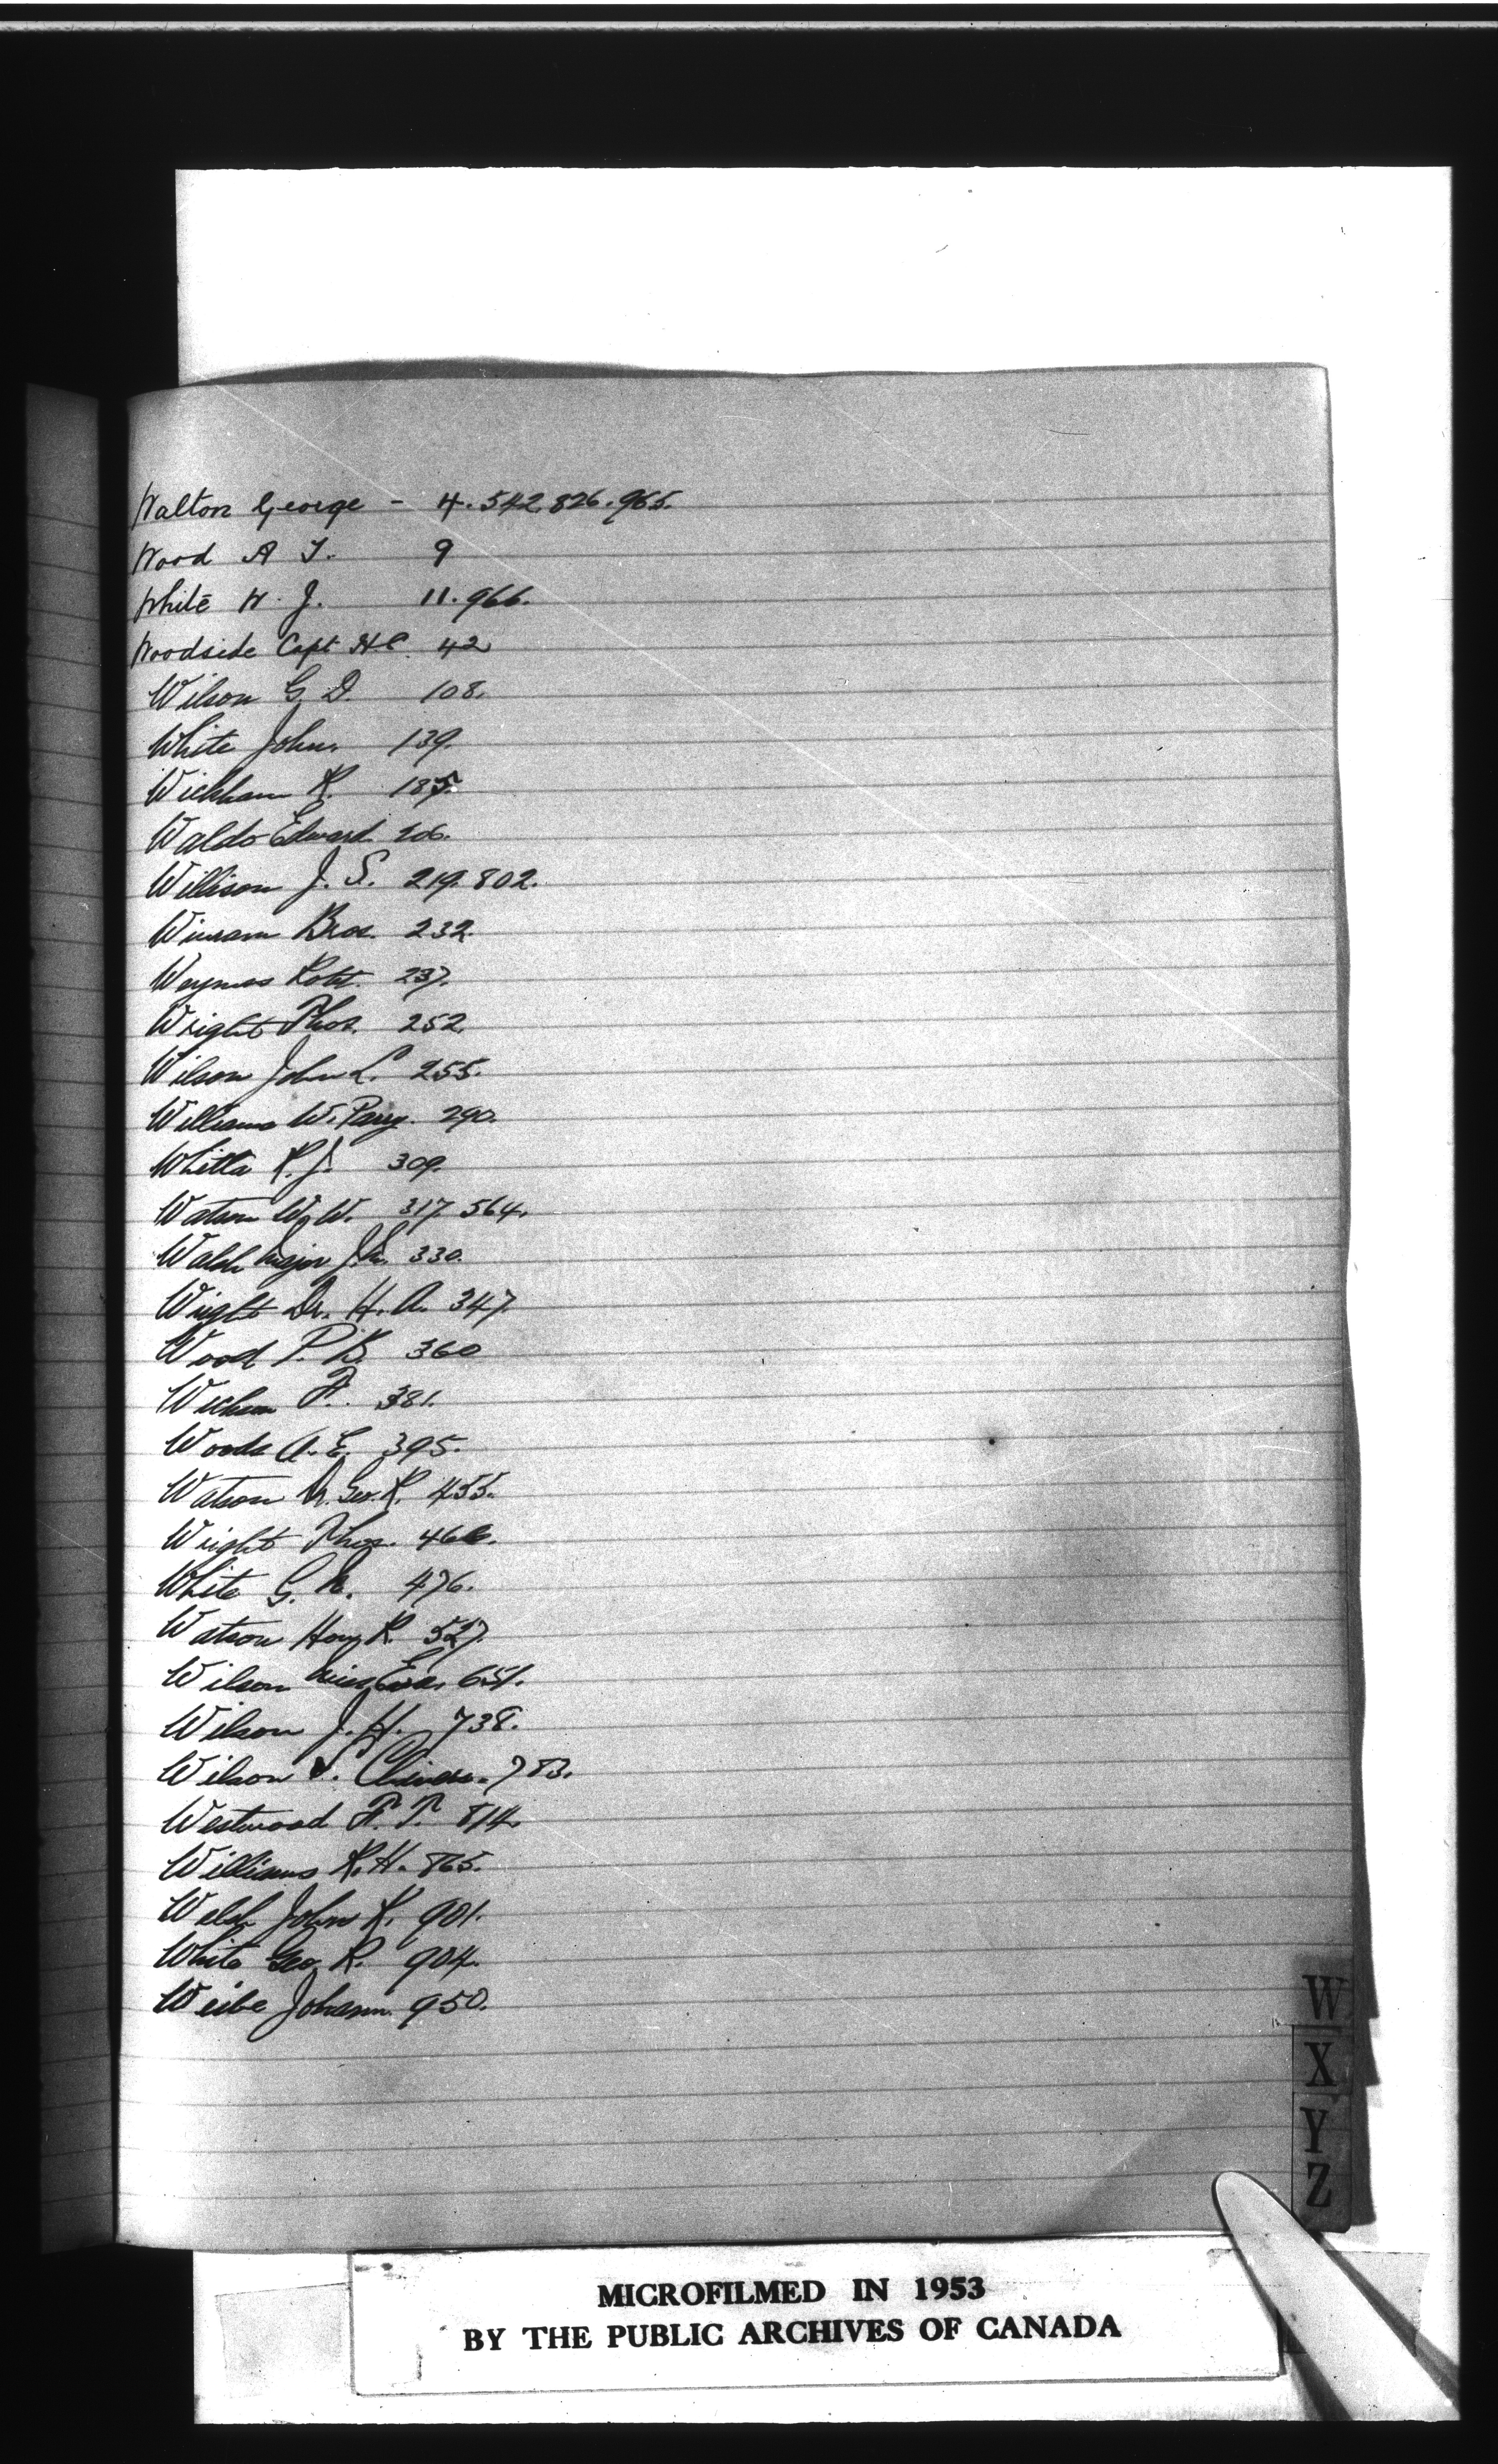 Walton George - 4. 542. 826. 965.
Wood A T. 9
White W. J. 11. 966.
Woodside Capt HC. 42
Wilson G. D. 108.
White John. 139.
Wickham R. 185.
Waldo Edward 206.
Willison J. S. 219. 802.
Winram Bros. 232.
Robt. 237.
Wright Thos. 252.
Wilson John L. 255.
Williams W. Parry. 290.
Whitla R. J. 309.
Watson W. W. 317. 564.
Walsh Major J. M. 330.
Wright Dr. H. A. 347.
Wood P. B. 360
F. 381.
Woods A. E. 395.
Watson Geo. R. 455.
Wright Thos. 466.
White G. 476.
Watson R. 527.
Wilson Miss Eva. 651.
Wilson J. H. 738.
Wilson 783.
Westwood F. T. 814.
Williams R. H. 865.
Welsh John R. 901.
White Geo. R. 904.
Weibe Johann. 950.
W
X
Y
Z
MICROFILMED IN 1953
BY THE PUBLIC ARCHIVES OF CANADA